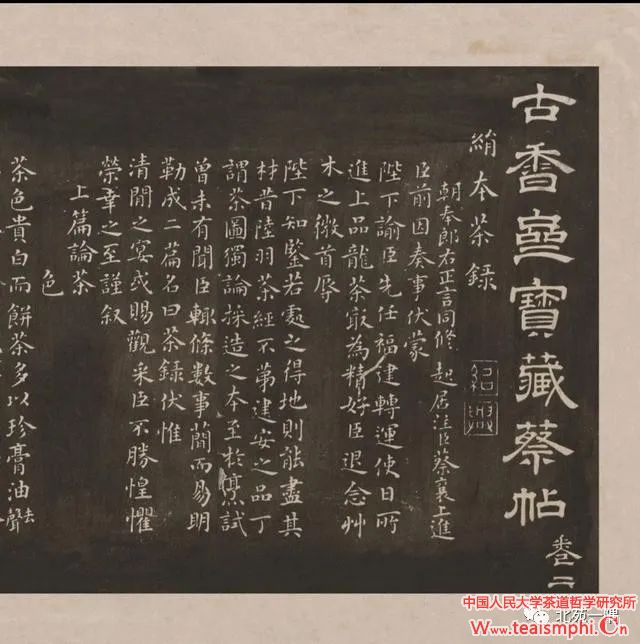 古香齋寶藏蔡帖 卷二
絹本茶錄
紹興
朝奉郎右正言同修起居注臣蔡襄上進
臣前因奏事伏蒙
陛下諭臣先任福建轉運使日所
進上品龍茶最為精好臣退念艸
木之微首辱
陛下知鑒若處之得地則能盡其
材昔陸羽茶經不第建安之品丁
謂茶圖獨論採造之本至於烹試
曾未有聞臣輒條數事簡而易明
勒成二篇名曰茶錄伏惟
清閒之宴或賜觀采臣不勝惶懼
榮幸之至謹叙
上篇論茶
色
茶色貴白而餅茶多以珍膏油去聲
中国人民大学茶道哲学研究所
北苑一隅
www.teaismphi.Cn